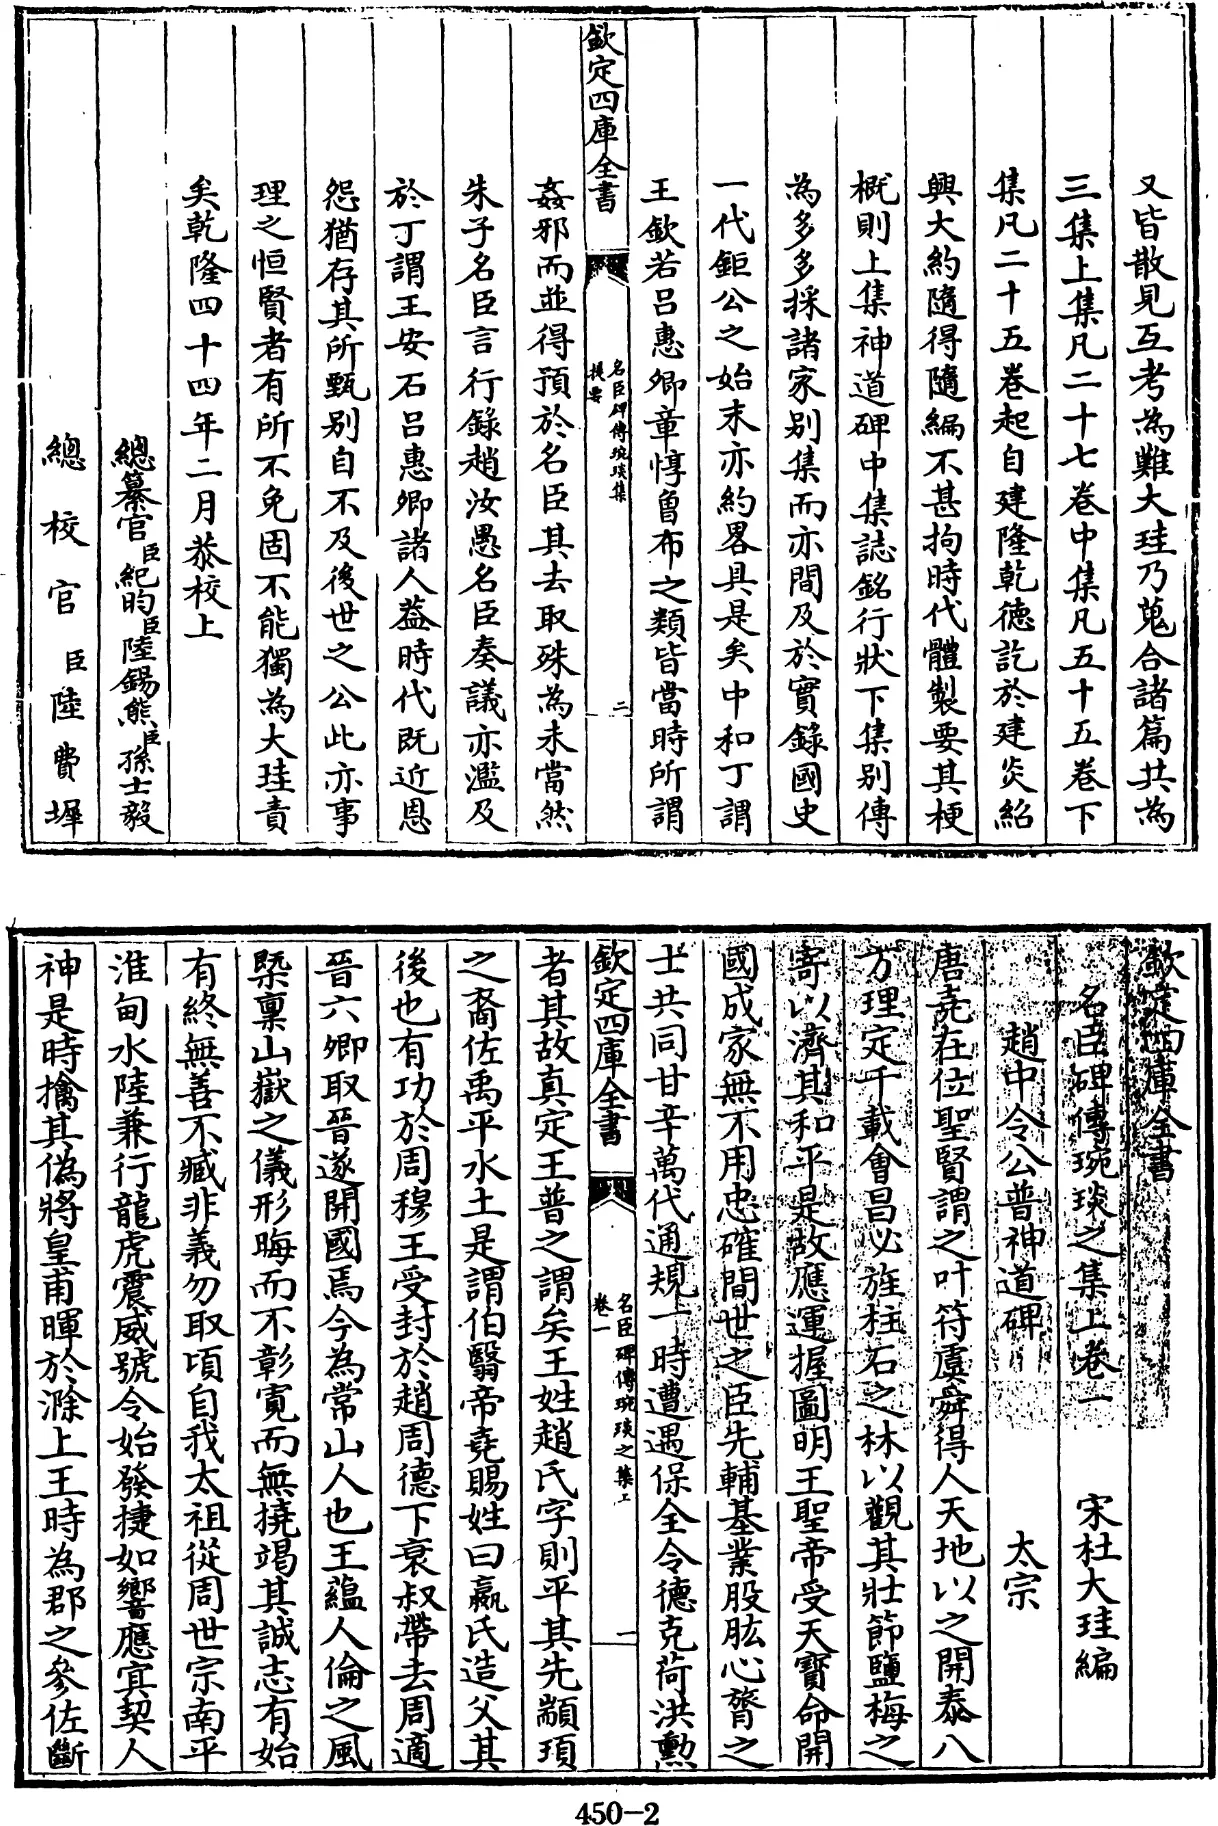 又皆散見互考為難大珪乃蒐合諸篇共為
三集上集凡二十七卷中集凡五十五卷下
集凡二十五卷起自建隆乾德訖於建炎紹
興大約隨得隨編不甚拘時代體製要其梗
概則上集神道碑中集誌銘行狀下集别傳
為多多採諸家别集而亦間及於實錄國史
一代鉅公之始末亦約畧具是矣中和丁謂
王欽若呂惠卿章惇曾布之類皆當時所謂
欽定四庫全書
名臣碑傳琬琰集
提要
二
姦邪而並得預於名臣其去取殊為未當然
朱子名臣言行錄趙汝愚名臣奏議亦濫及
於丁謂王安石呂惠卿諸人葢時代既近恩
怨猶存其所甄别自不及後世之公此亦事
理之恒賢者有所不免固不能獨為大珪責
矣乾隆四十四年二月恭校上
總纂官臣紀昀臣陸錫熊臣孫士毅
總校官臣陸費墀
欽定四庫全書
名臣碑傳琬琰之集上卷一
宋杜大珪編
趙中令公普神道碑
太宗
唐堯在位聖賢謂之叶符虞舜得人天地以之開泰八
方理定千載會昌必旌柱石之林以觀其壯節鹽梅之
寄以濟其和平是故應運握圖明王聖帝受天寳命開
國成家無不用忠確間世之臣先輔基業股肱心膂之
士共同甘辛萬代通規一時遭遇保全令德克荷洪勲
欽定四庫全書
名臣碑傳琬琰之集上
卷一
一
者其故真定王普之謂矣王姓趙氏字則平其先顓頊
之裔佐禹平水土是謂伯翳帝堯賜姓曰嬴氏造父其
後也有功於周穆王受封於趙周德下衰叔帶去周適
晉六卿取晉遂開國焉今為常山人也王蘊人倫之風
槩稟山嶽之儀形晦而不彰寛而無撓竭其誠志有始
有終無善不臧非義勿取頃自我太祖從周世宗南平
淮甸水陸兼行龍虎震威號令始發捷如響應宜契人
神是時擒其偽將皇甫暉於滁上王時為郡之參佐斷
450-2